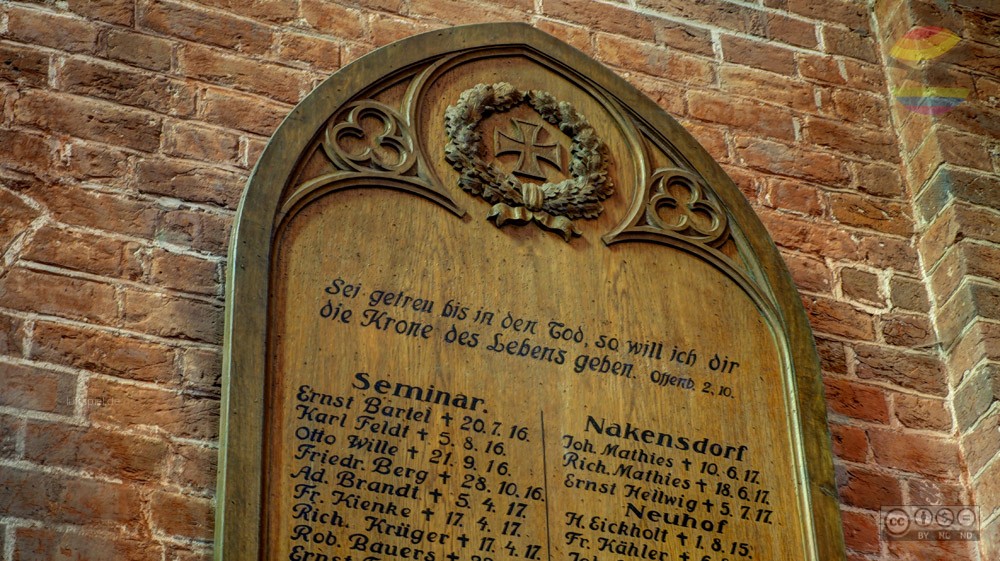 Sei getreu bis in den Tod, so will ich dir
die Krone des Lebens geben. Offenb. 2, 10.
Seminar.
Ernst Bartel † 20. 7. 16.
Karl Feldt † 5. 8. 16.
Otto Wille † 21. 9. 16.
Friedr. Berg † 28. 10. 16.
Ad. Brandt † 5. 4. 17.
Fr. Kienke † 17. 4. 17.
Rich. Krüger † 17. 4. 17.
Rob. Bauers †
Ernst
Nakensdorf
Joh. Mathies † 10. 6. 17.
Rich. Mathies † 18. 6. 17.
Ernst Hellwig † 5. 7. 17.
Neuhof
H. Eickholt † 1. 8. 15.
Fr. Kähler †
cc
BY NC ND